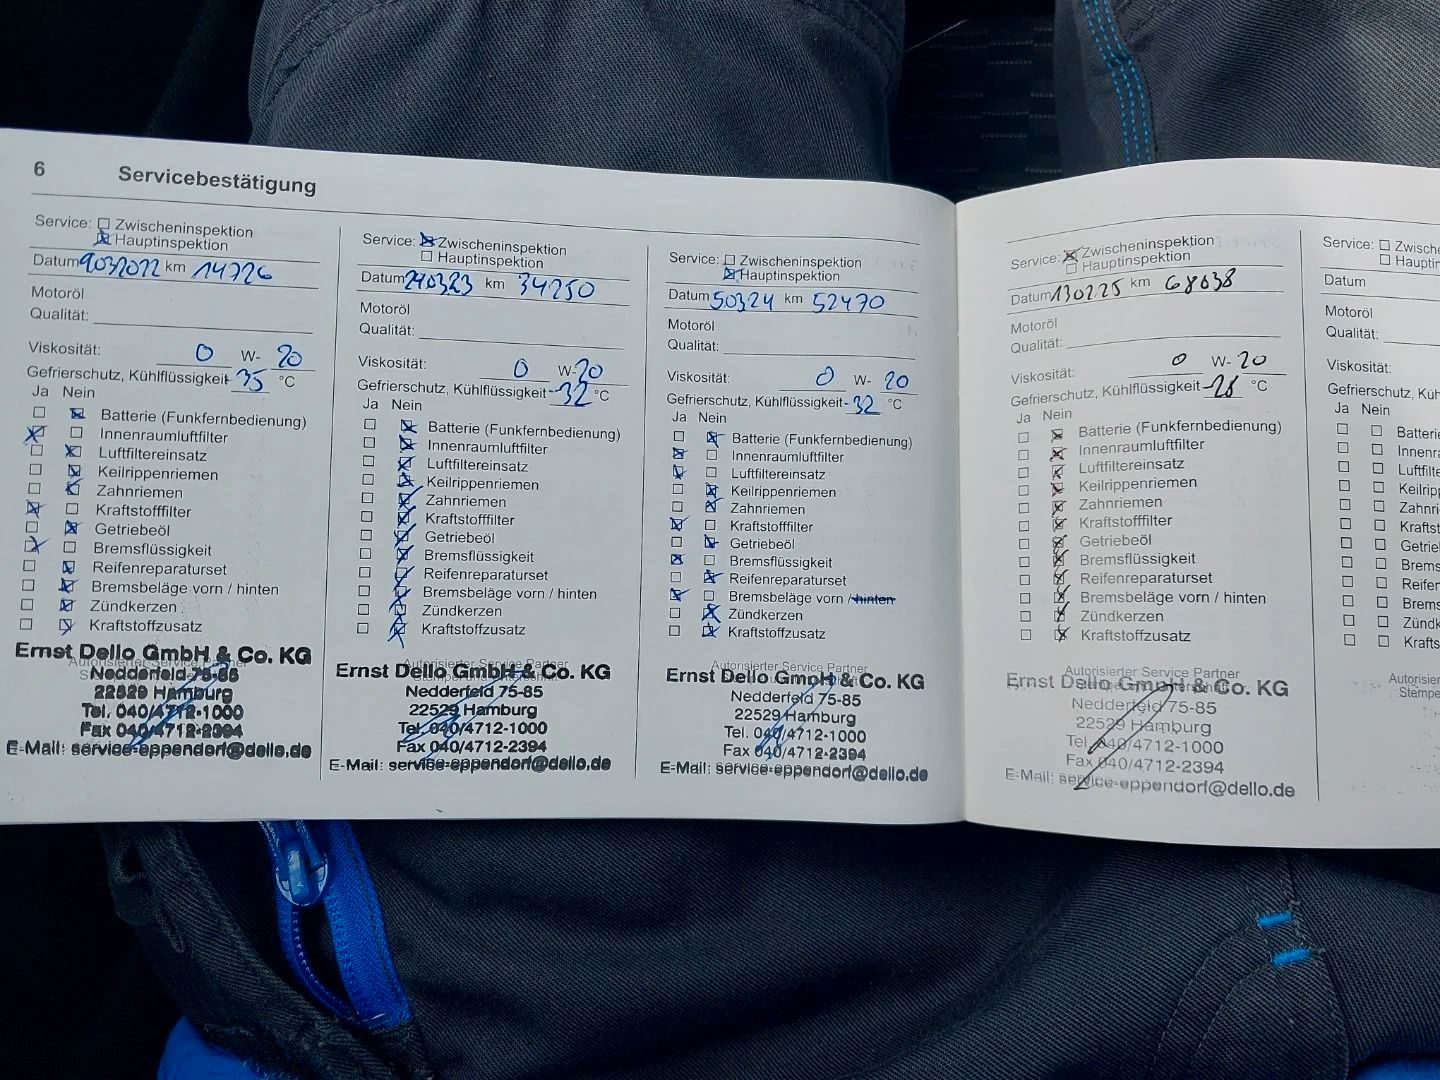 6 Servicebestätigung
Service: Zwischeninspektion
Hauptinspektion
Datum 9032022 km 14726
Motoröl
Qualität:
Viskosität: 0 W- 20
Gefrierschutz, Kühlflüssigkeit -35 °C
Ja Nein
Batterie (Funkfernbedienung)
Innenraumluftfilter
Luftfiltereinsatz
Keilrippenriemen
Zahnriemen
Kraftstofffilter
Getriebeöl
Bremsflüssigkeit
Reifenreparaturset
Bremsbeläge vorn / hinten
Zündkerzen
Kraftstoffzusatz
Autorisierter Service Partner
Ernst Dello GmbH & Co. KG
Nedderfeld 75-85
22529 Hamburg
Tel. 040/4712-1000
Fax 040/4712-2394
E-Mail: service-eppendorf@dello.de
Service: Zwischeninspektion
Hauptinspektion
Datum km 34250
Motoröl
Qualität:
Viskosität: 0 W- 20
Gefrierschutz, Kühlflüssigkeit -32 °C
Ja Nein
Batterie (Funkfernbedienung)
Innenraumluftfilter
Luftfiltereinsatz
Keilrippenriemen
Zahnriemen
Kraftstofffilter
Getriebeöl
Bremsflüssigkeit
Reifenreparaturset
Bremsbeläge vorn / hinten
Zündkerzen
Kraftstoffzusatz
Autorisierter Service Partner
Ernst Dello GmbH & Co. KG
Nedderfeld 75-85
22529 Hamburg
Tel. 040/4712-1000
Fax 040/4712-2394
E-Mail: service-eppendorf@dello.de
Service: Zwischeninspektion
Hauptinspektion
Datum 50324 km 52470
Motoröl
Qualität:
Viskosität: 0 W- 20
Gefrierschutz, Kühlflüssigkeit -32 °C
Ja Nein
Batterie (Funkfernbedienung)
Innenraumluftfilter
Luftfiltereinsatz
Keilrippenriemen
Zahnriemen
Kraftstofffilter
Getriebeöl
Bremsflüssigkeit
Reifenreparaturset
Bremsbeläge vorn / hinten
Zündkerzen
Kraftstoffzusatz
Autorisierter Service Partner
Ernst Dello GmbH & Co. KG
Nedderfeld 75-85
22529 Hamburg
Tel. 040/4712-1000
Fax 040/4712-2394
E-Mail: service-eppendorf@dello.de
Service: Zwischeninspektion
Hauptinspektion
Datum 130225 km 68638
Motoröl
Qualität:
Viskosität: 0 W- 20
Gefrierschutz, Kühlflüssigkeit -28 °C
Ja Nein
Batterie (Funkfernbedienung)
Innenraumluftfilter
Luftfiltereinsatz
Keilrippenriemen
Zahnriemen
Kraftstofffilter
Getriebeöl
Bremsflüssigkeit
Reifenreparaturset
Bremsbeläge vorn / hinten
Zündkerzen
Kraftstoffzusatz
Autorisierter Service Partner
Ernst Dello GmbH & Co. KG
Nedderfeld 75-85
22529 Hamburg
Tel. 040/4712-1000
Fax 040/4712-2394
E-Mail: service-eppendorf@dello.de
Service: Zwische
Hauptin
Datum
Motoröl
Qualität:
Viskosität:
Gefrierschutz, Küh
Ja Nein
Batterie
Innenra
Luftfilte
Keilripp
Zahnri
Kraftst
Getrieb
Brems
Reifen
Brems
Zündk
Krafts
Autorisier
Stempe